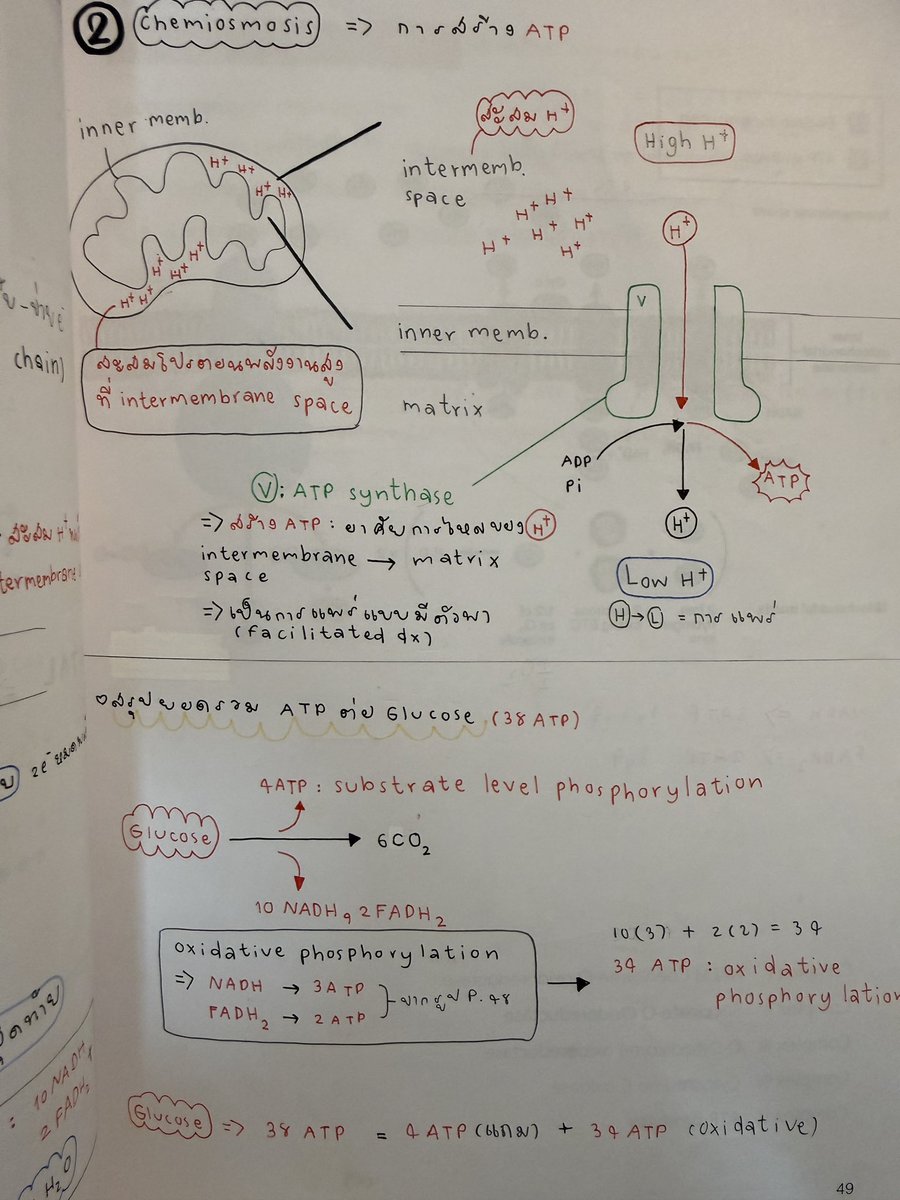 2 Chemiosmosis => การสร้าง ATP
inner memb.
H+ H+
H+ H+
H+
H+ H+
H+ H+
สะสมโปรตอนพลังงานสูง
ที่ intermembrane space
สะสม H+
intermemb.
space
H+ H+
H+ H+ H+
H+
High H+
H+
V
inner memb.
matrix
ADP
Pi
ATP
H+
Low H+
H → L = การแพร่
V : ATP synthase
=> สร้าง ATP : อาศัยการไหลของ H+
intermembrane → matrix
space
=> เป็นการแพร่แบบมีตัวพา
(facilitated dx)
สรุปยอดรวม ATP ต่อ Glucose (38 ATP)
4ATP : substrate level phosphorylation
Glucose → 6CO2
10 NADH, 2 FADH2
oxidative phosphorylation
=> NADH → 3 ATP
FADH2 → 2 ATP
จากรูป P. 48
10(3) + 2(2) = 34
34 ATP : oxidative
phosphorylation
Glucose => 38 ATP = 4 ATP (แถม) + 34 ATP (oxidative)
chain)
สะสม H+
10 NADH
2 FADH2
H2O
49